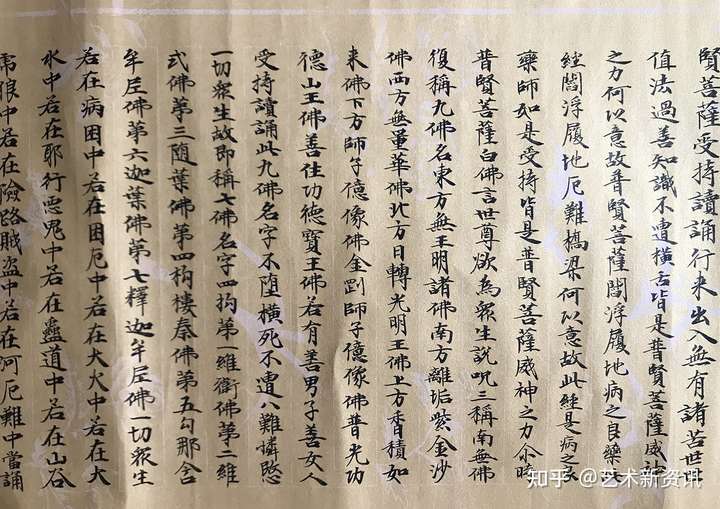 賢菩薩受持讀誦行来出入無有諸苦世世
值法過善知識不遭橫舌皆是普賢菩薩威神
之力何以意故普賢菩薩閻浮履地病之良藥
經閻浮履地厄難橋梁何以意故此經是病之
藥師如是受持皆是普賢菩薩威神之力尒時
普賢菩薩白佛言世尊欲為衆生說呪三稱南無佛
復稱九佛名東方無王明諸佛南方離垢紫金沙
佛西方無量華佛北方日轉光明王佛上方香積如
来佛下方師子億像佛金剛師子億像佛普光功
德山王佛善住功德寶王佛若有善男子善女人
受持讀誦此九佛名字不墮橫死不遭八難憐愍
一切衆生故即稱七佛名字四拘第一維衛佛第二維
式佛第三隨葉佛第四拘樓秦佛第五勾那含
牟尼佛第六迦葉佛第七釋迦牟尼佛一切衆生
若在病困中若在困厄中若在大火中若在大
水中若在耶行惡鬼中若在蠱道中若在山谷
虎狼中若在險路賊盜中若在河厄難中當誦
知乎 @艺术新资讯